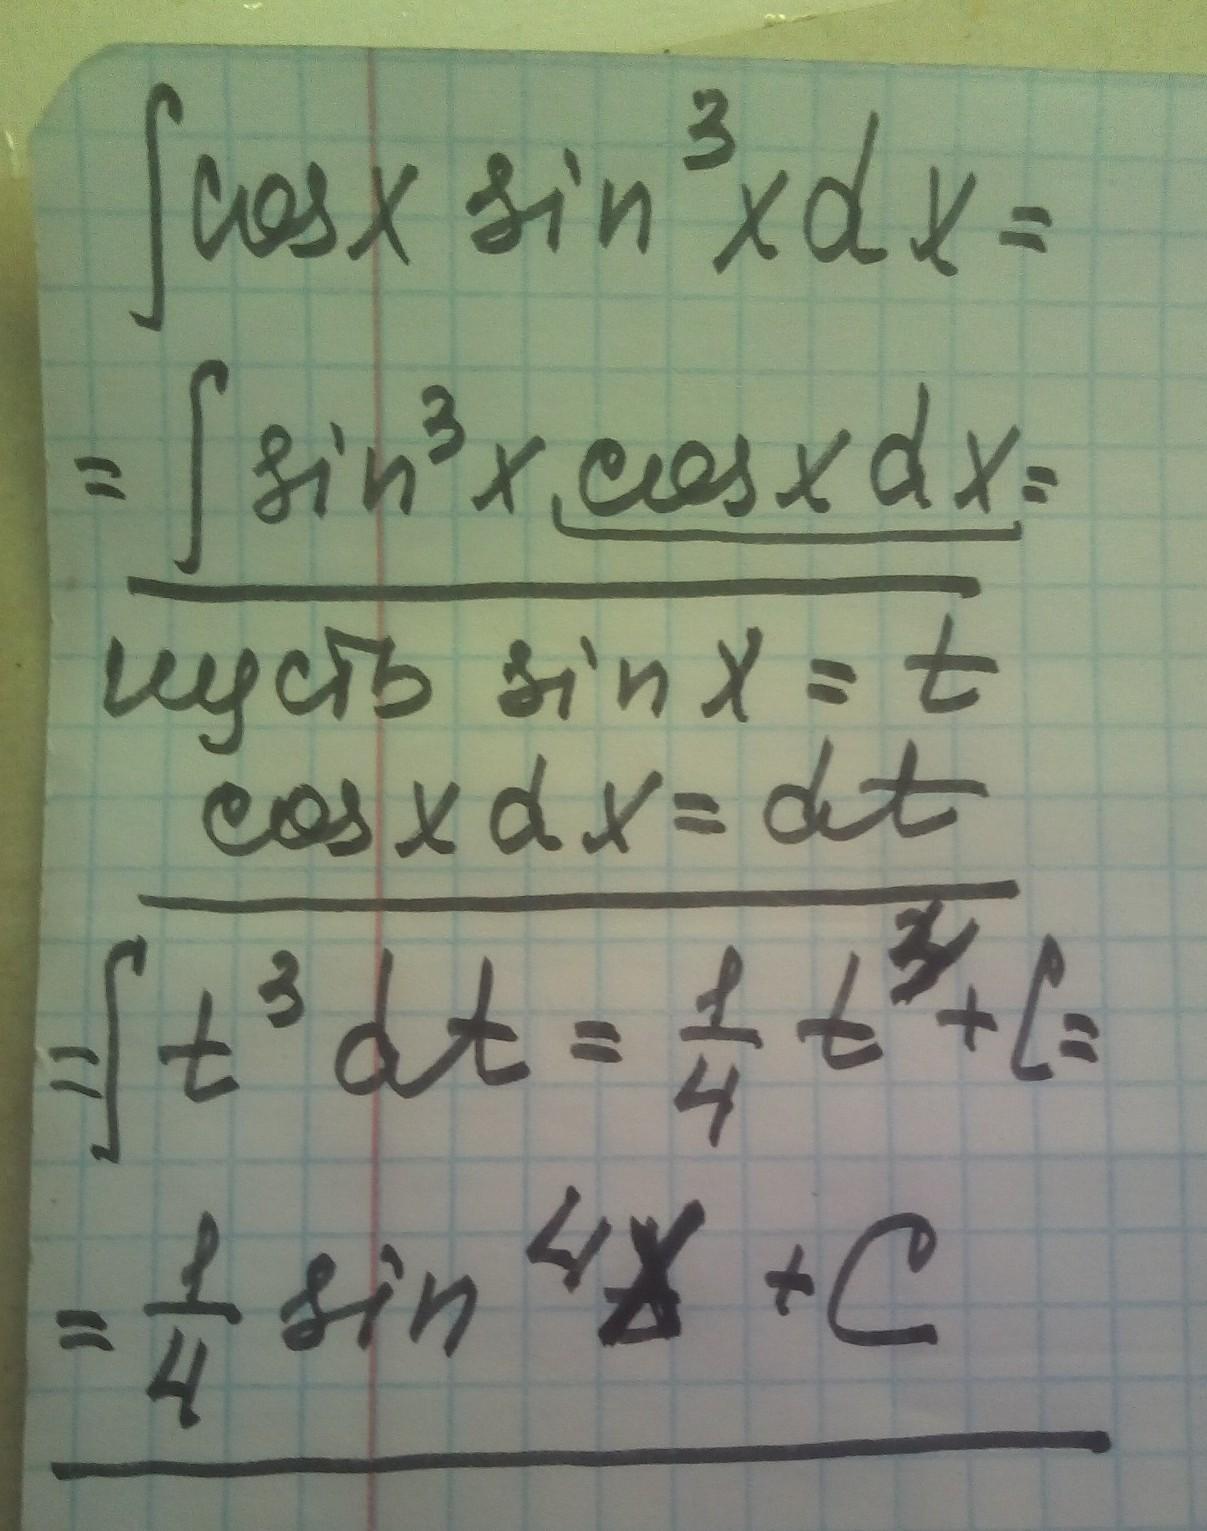 ∫cos x sin³x dx =
= ∫ sin³x cos x dx =
пусть sin x = t
cos x dx = dt
= ∫ t³ dt = 1/4 t + C =
= 1/4 sin⁴x + C